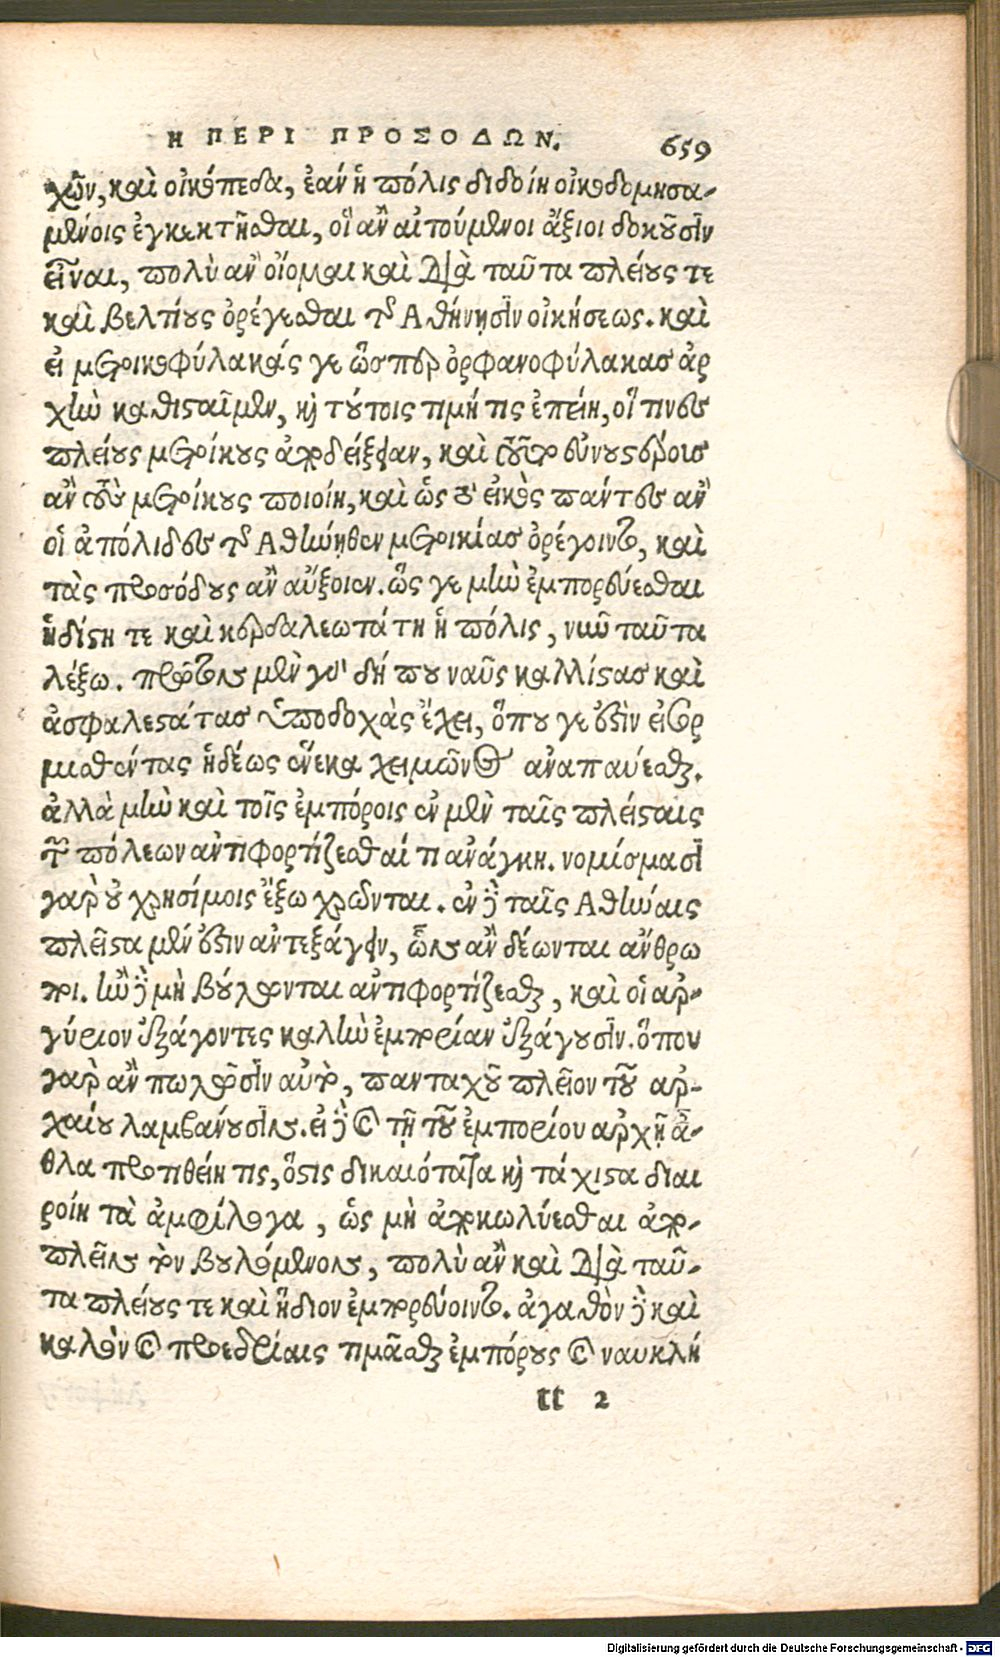 Η ΠΕΡΙ ΠΡΟΣΟΔΩΝ. 659
χῶν, καὶ οἰκόπεδα, ἐὰν ἡ πόλις διδοίη οἰκοδομησα-
μένοις ἐγκεκτῆσθαι, οἳ ἂν αἰτούμενοι ἄξιοι δοκοῦσιν
εἶναι, πολὺ ἂν οἴομαι καὶ διὰ ταῦτα πλείους τε
καὶ βελτίους ὀρέγεσθαι τῆς Ἀθήνησιν οἰκήσεως. καὶ
εἰ μετοικοφύλακάς γε ὥσπερ ὀρφανοφύλακας ἀρ
χὴν καθισταῖμεν, καὶ τούτοις τιμή τις ἐπείη, οἵ τινες
πλείους μετοίκους ἀποδείξειαν, καὶ οὗτοι εὐνουστέροις
ἂν τοὺς μετοίκους ποιοίη, καὶ ὡς τὸ εἰκὸς πάντες ἂν
οἱ ἀπόλιδες τῆς Ἀθήνηθεν μετοικίας ὀρέγοιντο, καὶ
τὰς προσόδους ἂν αὔξοιεν. ὥς γε μὴν ἐμπορεύεσθαι
ἡδίστη τε καὶ κερδαλεωτάτη ἡ πόλις, νῦν ταῦτα
λέξω. πρῶτον μὲν γὰρ δή που ναῦς καλλίστας καὶ
ἀσφαλεστάτας ὑποδοχὰς ἔχει, ὅπου γε ἐστὶν εἰσορ
μισθέντας ἡδέως ἕνεκα χειμῶνος ἀναπαύεσθαι.
ἀλλὰ μὴν καὶ τοῖς ἐμπόροις ἐν μὲν ταῖς πλείσταις
τῶν πόλεων ἀντιφορτίζεσθαί τι ἀνάγκη. νομίσμασι
γὰρ οὐ χρησίμοις ἔξω χρῶνται. ἐν δὲ ταῖς Ἀθήναις
πλεῖστα μέν ἐστιν ἀντεξάγειν, ὧν ἂν δέωνται ἄνθρω
ποι. ἢν δὲ μὴ βούλωνται ἀντιφορτίζεσθαι, καὶ οἱ ἀρ-
γύριον ἐξάγοντες καλὴν ἐμπορίαν ἐξάγουσιν. ὅπου
γὰρ ἂν πωλῶσιν αὐτὸ, πανταχοῦ πλεῖον τοῦ ἀρ-
χαίου λαμβάνουσιν. εἰ δὲ καὶ τῇ τοῦ ἐμπορίου ἀρχῇ ἆ-
θλα προτιθείη τις, ὅστις δικαιότατα καὶ τάχιστα διαι
ροίη τὰ ἀμφίλογα, ὡς μὴ ἀποκωλύεσθαι ἀπο-
πλεῖν τὸν βουλόμενον, πολὺ ἂν καὶ διὰ ταῦ-
τα πλείους τε καὶ ἥδιον ἐμπορεύοιντο. ἀγαθὸν δὲ καὶ
καλὸν καὶ προεδρίαις τιμᾶσθαι ἐμπόρους καὶ ναυκλή
tt 2
Digitalisierung gefördert durch die Deutsche Forschungsgemeinschaft - DFG